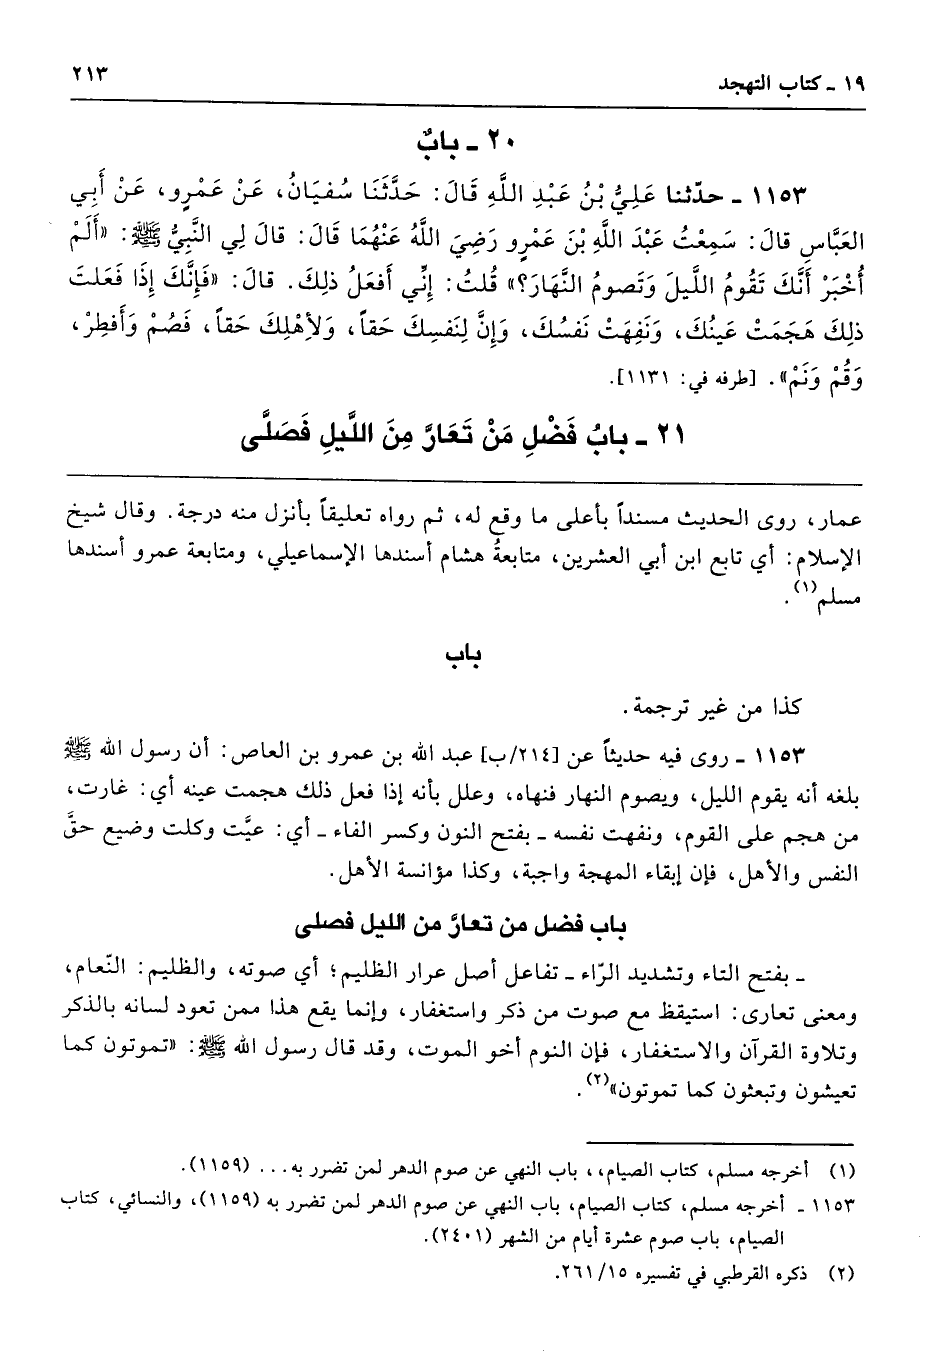 ١٩ ـ كتاب التهجد
٢١٣
٢٠ ـ بابٌ
١١٥٣ ـ حدّثنا عَلِيُّ بْنُ عَبْدِ اللَّهِ قَالَ: حَدَّثَنَا سُفيَانُ، عَنْ عَمْرٍو، عَنْ أَبِي
العَبَّاسِ قالَ: سَمِعْتُ عَبْدَ اللَّهِ بْنَ عَمْرٍو رَضِيَ اللَّهُ عَنْهُمَا قَالَ: قالَ لِي النَّبِيُّ ﷺ: «أَلَمْ
أُخْبَرْ أَنَّكَ تَقُومُ اللَّيلَ وَتَصومُ النَّهَارَ؟» قُلتُ: إِنِّي أَفعَلُ ذلِكَ. قالَ: «فَإِنَّكَ إِذَا فَعَلتَ
ذلِكَ هَجَمَتْ عَينُكَ، وَنَفِهَتْ نَفسُكَ، وَإِنَّ لِنَفسِكَ حَقاً، وَلأِهْلِكَ حَقاً، فَصُمْ وَأَفطِرْ،
وَقُمْ وَنَمْ». [طرفه في: ١١٣١].
٢١ ـ بابُ فَضْلِ مَنْ تَعَارَّ مِنَ اللَّيلِ فَصَلَّى
عمار، روى الحديث مسنداً بأعلى ما وقع له، ثم رواه تعليقاً بأنزل منه درجة. وقال شيخ
الإسلام: أي تابع ابن أبي العشرين، متابعةُ هشام أسندها الإسماعيلي، ومتابعة عمرو أسندها
مسلم(١).
باب
كذا من غير ترجمة.
١١٥٣ ـ روى فيه حديثاً عن [٢١٤/ب] عبد الله بن عمرو بن العاص: أن رسول الله ﷺ
بلغه أنه يقوم الليل، ويصوم النهار فنهاه، وعلل بأنه إذا فعل ذلك هجمت عينه أي: غارت،
من هجم على القوم، ونفهت نفسه ـ بفتح النون وكسر الفاء ـ أي: عيَّت وكلت وضيع حقَّ
النفس والأهل، فإن إبقاء المهجة واجبة، وكذا مؤانسة الأهل.
باب فضل من تعارَّ من الليل فصلى
ـ بفتح التاء وتشديد الرّاء ـ تفاعل أصل عرار الظليم؛ أي صوته، والظليم: النّعام،
ومعنى تعارى: استيقظ مع صوت من ذكر واستغفار، وإنما يقع هذا ممن تعود لسانه بالذكر
وتلاوة القرآن والاستغفار، فإن النوم أخو الموت، وقد قال رسول الله ﷺ: «تموتون كما
تعيشون وتبعثون كما تموتون»(٢).
(١) أخرجه مسلم، كتاب الصيام،، باب النهي عن صوم الدهر لمن تضرر به... (١١٥٩).
١١٥٣ ـ أخرجه مسلم، كتاب الصيام، باب النهي عن صوم الدهر لمن تضرر به (١١٥٩)، والنسائي، كتاب
الصيام، باب صوم عشرة أيام من الشهر (٢٤٠١).
(٢) ذكره القرطبي في تفسيره ٢٦١/١٥.